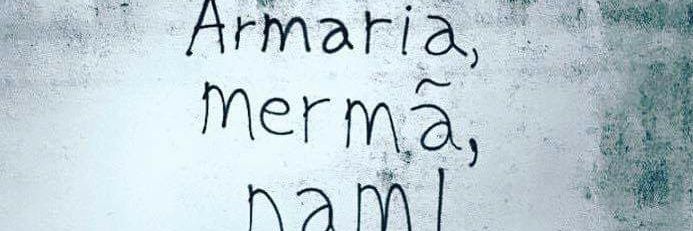 Armaria,
mermã,
nam!